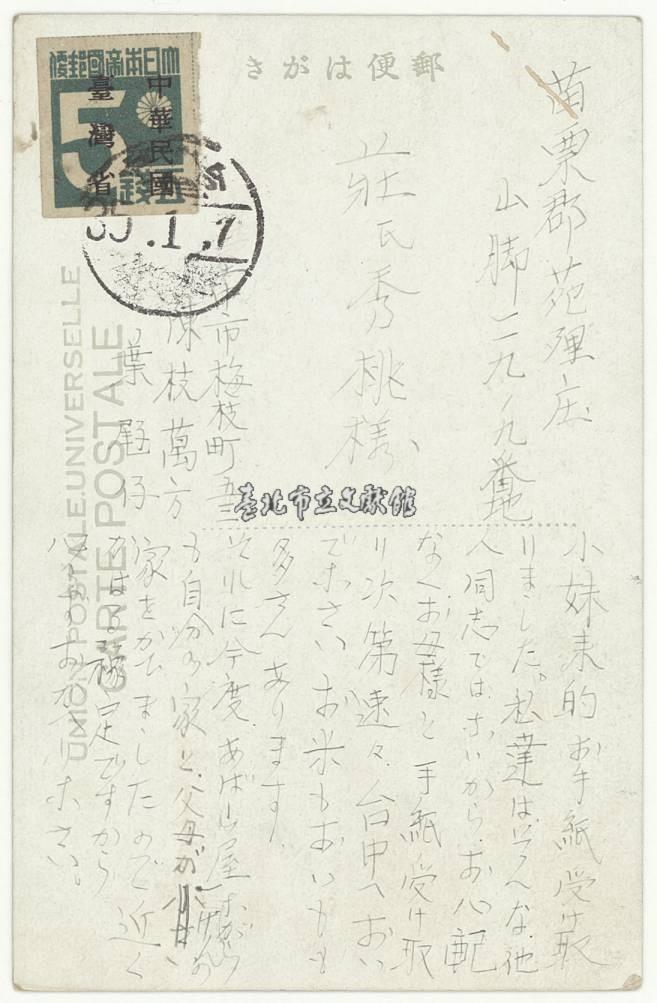 郵便はがき
大日本帝國郵便
中華民國
臺灣省
5
五錢
35.1.7
苗栗郡苑裡庄
山脚二九ノ九番地
莊氏秀桃様
市梅枝町五三
陳枝萬方
葉
仔
UNION POSTALE UNIVERSELLE
CARTE POSTALE
臺北市立文獻館
小妹来的お手紙受け取
りました。私達はそんな他
人同志では

から、お心配
なくお母様と手紙受け取
り次第速々台中へおい
で下さいお米もおいもも
多さんあります
それに今度、あばら屋
も自分の家と、父母が
家を

ましたので近く

足ですから
下さい。